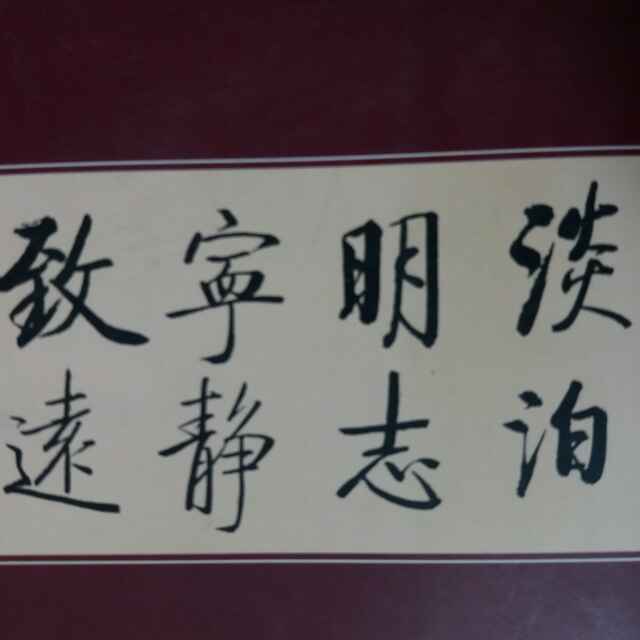 淡泊
明志
寧静
致遠